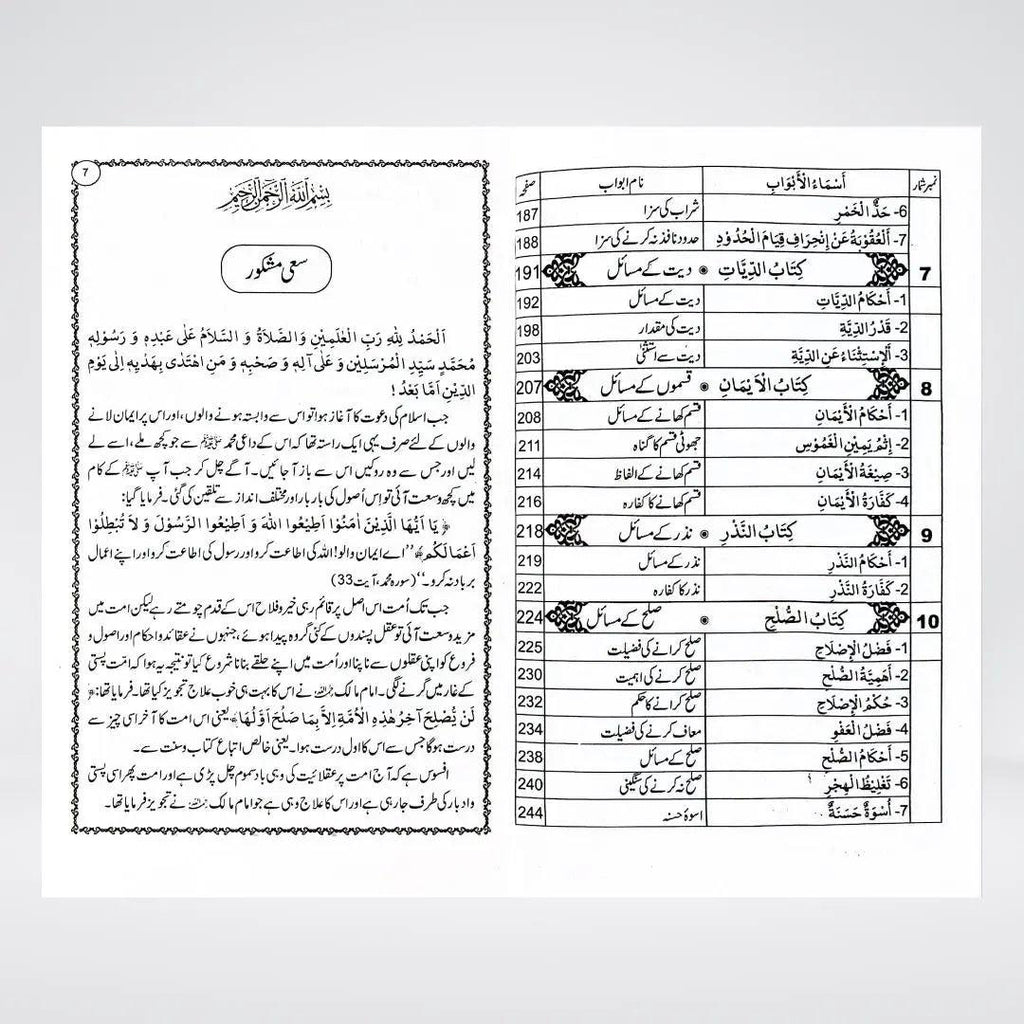 نمبر شمار أَسْمَاءُ الْأَبْوَابِ نام ابواب صفحہ
6- حَدُّ الْخَمْرِ شراب کی سزا 187
7- اَلْعُقُوْبَةُ عَنْ إِنْحِرَافِ قِيَامِ الْحُدُوْدِ حدود نافذ نہ کرنے کی سزا 188
7 كِتَابُ الدِّيَّاتِ ٭ دیت کے مسائل 191
1- أَحْكَامُ الدِّيَّاتِ دیت کے مسائل 192
2- قَدْرُ الدِّيَّةِ دیت کی مقدار 198
3- اَلْإِسْتِثْنَاءُ عَنِ الدِّيَّةِ دیت سے استثنیٰ 203
8 كِتَابُ الْاَيْمَانِ ٭ قسموں کے مسائل 207
1- أَحْكَامُ الْأَيْمَانِ قسم کھانے کے مسائل 208
2- إِثْمُ يَمِيْنِ الْغَمُوْسِ جھوٹی قسم کا گناہ 211
3- صِيْغَةُ الْأَيْمَانِ قسم کھانے کے الفاظ 214
4- كَفَّارَةُ الْأَيْمَانِ قسم کھانے کا کفارہ 216
9 كِتَابُ النَّذْرِ ٭ نذر کے مسائل 218
1- أَحْكَامُ النَّذْرِ نذر کے مسائل 219
2- كَفَّارَةُ النَّذْرِ نذر کا کفارہ 222
10 كِتَابُ الصُّلْحِ ٭ صلح کے مسائل 224
1- فَضْلُ الْإِصْلَاحِ صلح کرانے کی فضیلت 225
2- أَهَمِيَّةُ الصُّلْحِ صلح کرنے کی اہمیت 230
3- حُكْمُ الْإِصْلَاحِ صلح کرانے کا حکم 232
4- فَضْلُ الْعَفْوِ معاف کرنے کی فضیلت 234
5- أَحْكَامُ الصُّلْحِ صلح کے مسائل 238
6- تَغْلِيْظُ الْهِجْرِ صلح نہ کرنے کی سنگینی 240
7- أُسْوَةٌ حَسَنَةٌ اسوۂ حسنہ 244
7
بِسْمِ اللّٰهِ الرَّحْمٰنِ الرَّحِيْمِ
سعی مشکور
اَلْحَمْدُ لِلّٰهِ رَبِّ الْعٰلَمِيْنِ وَالصَّلَاةُ وَ السَّلَامُ عَلٰى عَبْدِهٖ وَ رَسُوْلِهٖ
مُحَمَّدٍ سَيِّدِ الْمُرْسَلِيْنِ وَ عَلٰى آلِهٖ وَ صَحْبِهٖ وَ مَنِ اهْتَدٰى بِهَدْيِهٖ اِلٰى يَوْمِ
الدِّيْنِ اَمَّا بَعْدُ !
جب اسلام کی دعوت کا آغاز ہوا تو اس سے وابستہ ہونے والوں، اور اس پر ایمان لانے
والوں کے لئے صرف یہی ایک راستہ تھا کہ اس کے داعی محمد ﷺ سے جو کچھ ملے، اسے لے
لیں اور جس سے وہ روکیں اس سے باز آ جائیں۔ آگے چل کر جب آپ ﷺ کے کام
میں کچھ وسعت آئی تو اِس اُصول کی بار بار اور مختلف انداز سے تلقین کی گئی۔ فرمایا گیا:
﴿يَا اَيُّهَا الَّذِيْنَ اٰمَنُوْا اَطِيْعُوا اللّٰهَ وَ اَطِيْعُوا الرَّسُوْلَ وَ لَا تُبْطِلُوْا
اَعْمَالَكُمْ﴾ ”اے ایمان والو! اللہ کی اطاعت کرو اور رسول کی اطاعت کرو اور اپنے اعمال
برباد نہ کرو۔“ (سورہ محمد، آیت 33)
جب تک اُمت اس اصل پر قائم رہی خیر و فلاح اس کے قدم چومتے رہے لیکن امت میں
مزید وسعت آئی تو عقل پسندوں کے کئی گروہ پیدا ہوئے، جنہوں نے عقائد و احکام اور اصول و
فروع کو اپنی عقلوں سے ناپنا اور اُمت میں اپنے حلقے بنانا شروع کیا تو نتیجہ یہ ہوا کہ امت پستی
کے غار میں گرنے لگی۔ امام مالک رحمہ اللہ نے اس کا بہت ہی خوب علاج تجویز کیا تھا۔ فرمایا تھا: ﴿
لَنْ يُّصْلِحَ آخِرُ هٰذِهِ الْاُمَّةِ اِلَّا بِمَا صَلُحَ اَوَّلُهَا﴾ یعنی اس امت کا آخر اسی چیز سے
درست ہوگا جس سے اس کا اول درست ہوا۔ یعنی خالص اتباع کتاب و سنت سے۔
افسوس ہے کہ آج امت پر عقلائیت کی وہی باد سموم چل پڑی ہے اور امت پھر اسی پستی
و ادبار کی طرف جا رہی ہے اور اس کا علاج وہی ہے جو امام مالک رحمہ اللہ نے تجویز فرمایا تھا۔